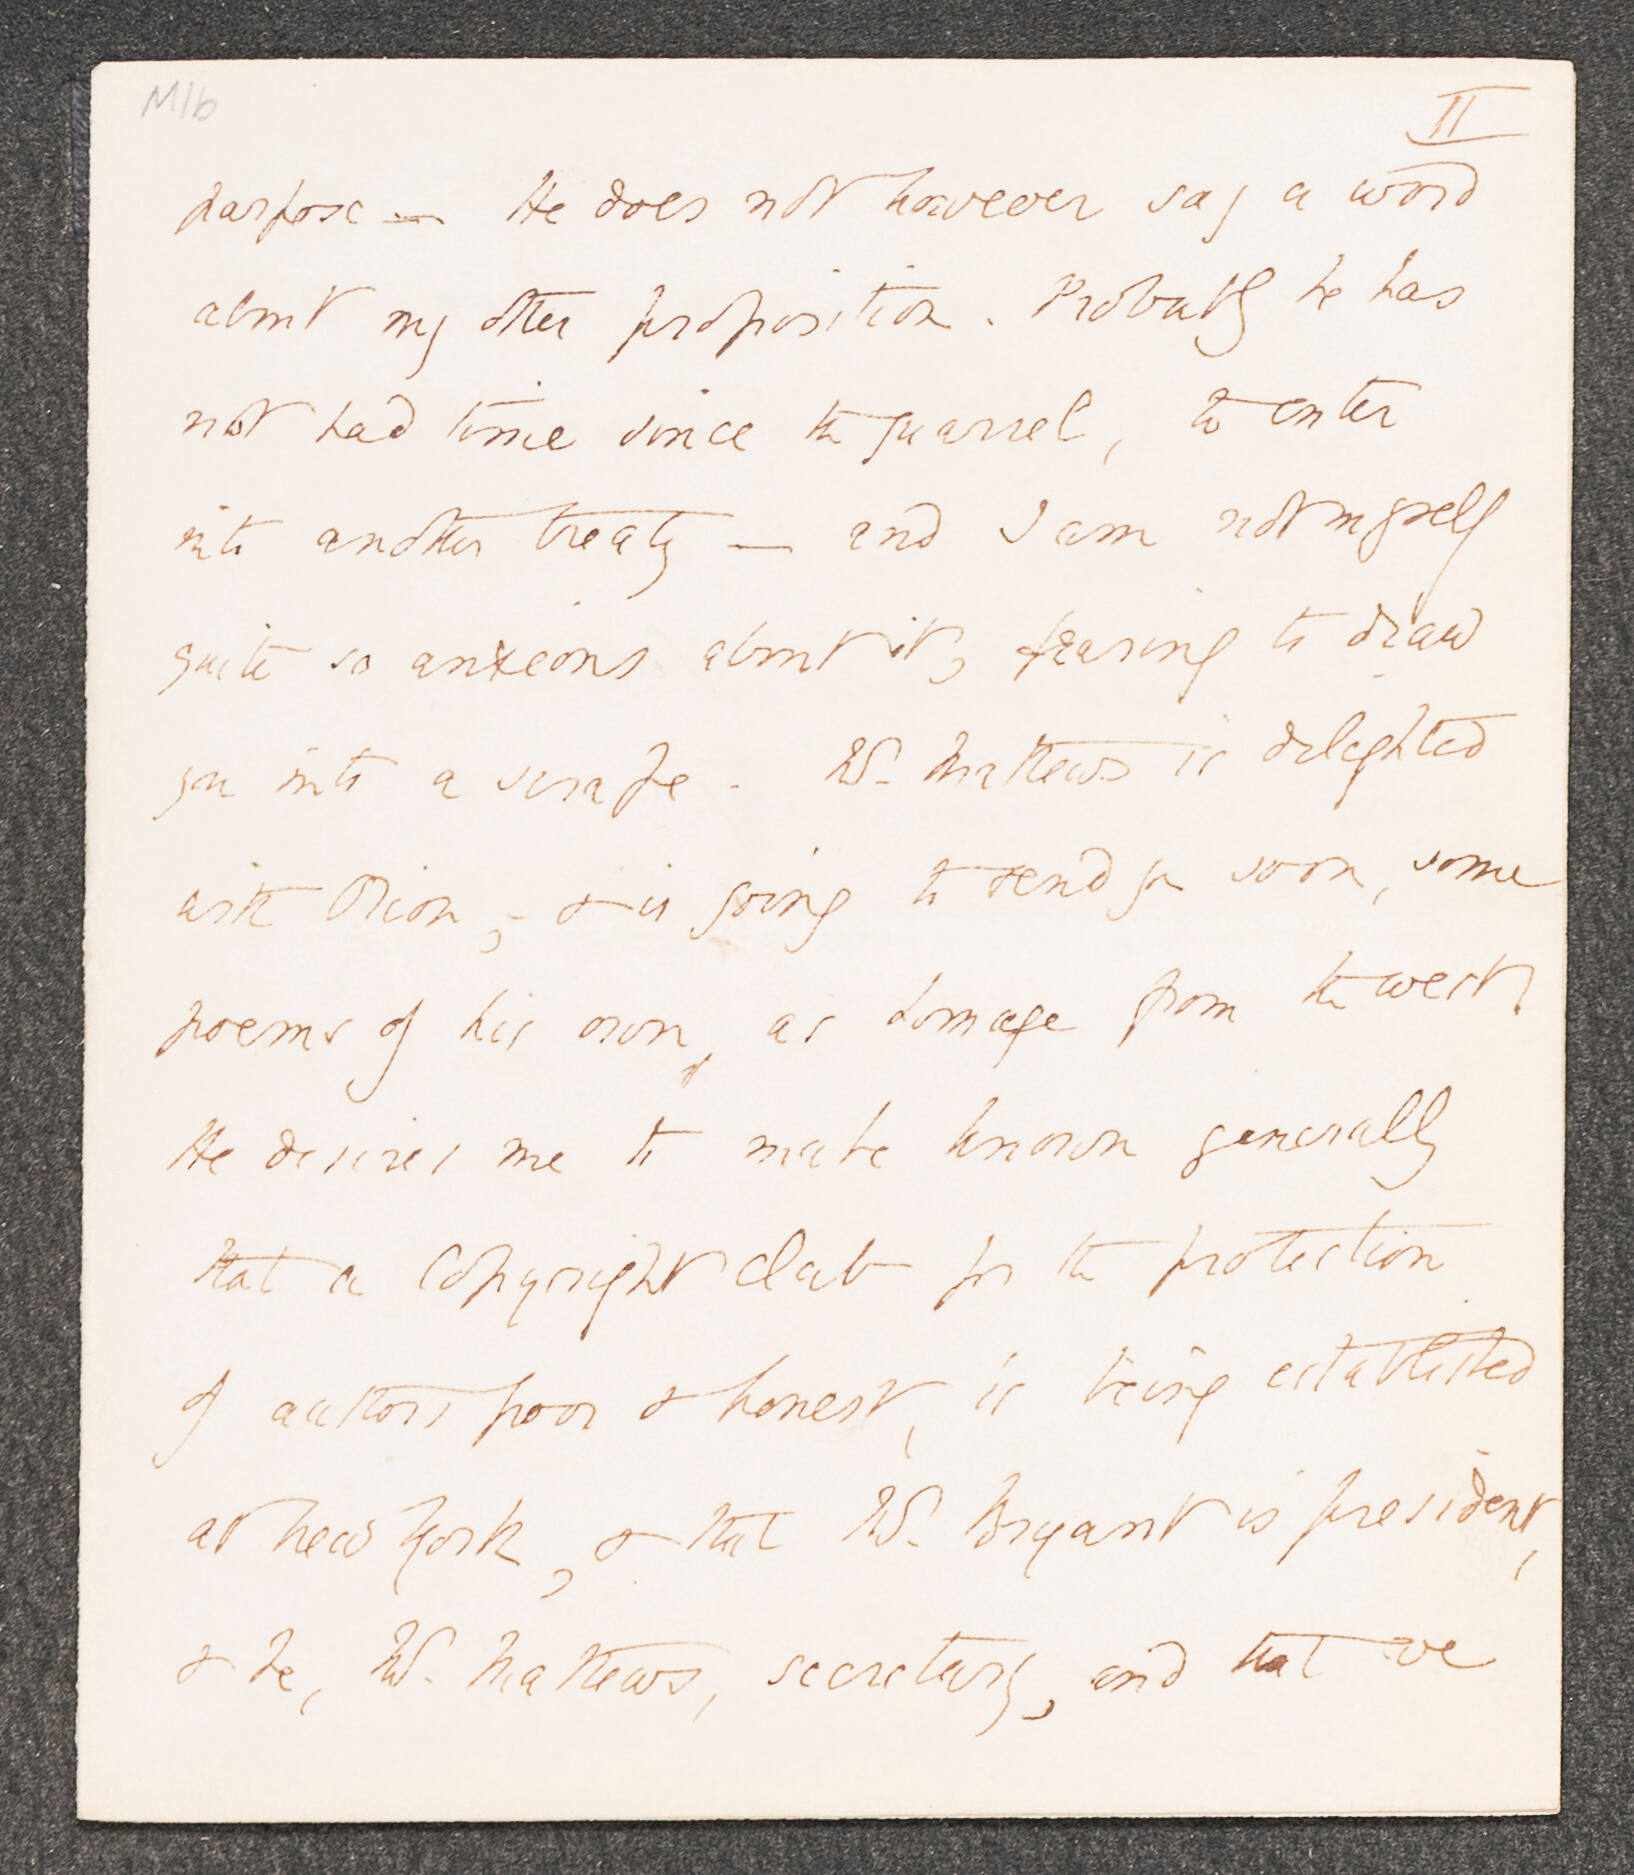 M1b
II
purpose — He does not however say a word
about my other proposition. Probably he has
not had time since the quarrel, to enter
into another treaty — and I am not myself
quite so anxious about it, fearing to draw
you into a scrape. Mr. Mathews is delighted
with Orion, & is going to send you soon, some
poems of his own, as homage from the west.
He desires me to make known generally
that a copyright club for the protection
of authors poor & honest, is being established
at New York, & that Mr. Bryant is president,
& he, Mr. Mathews, secretary, and that we